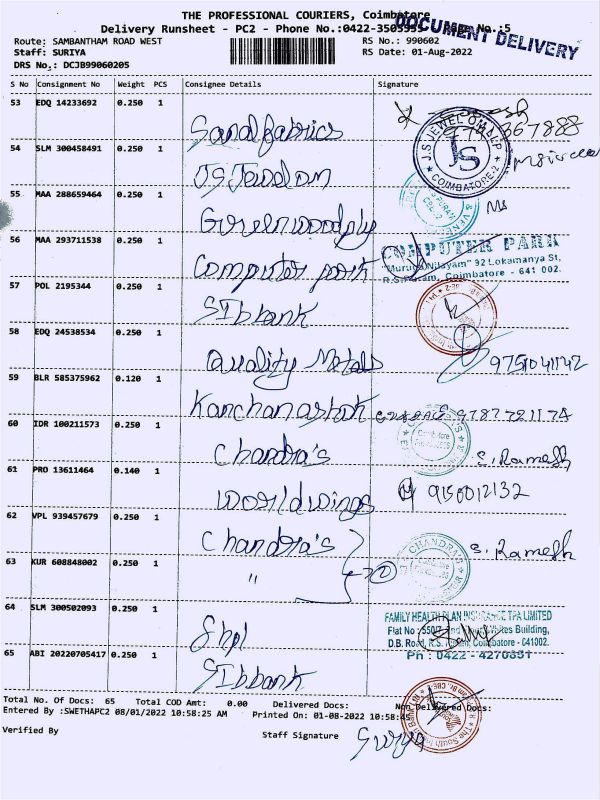 THE PROFESSIONAL COURIERS, Coimbatore
Delivery Runsheet - PC2 - Phone No.:0422-3505955 Page No.:5
DOCUMENT DELIVERY
Route: SAMBANTHAM ROAD WEST RS No.: 990602
Staff: SURIYA RS Date: 01-Aug-2022
DRS No.: DCJB99060205
S No Consignment No Weight PCS Consignee Details Signature
53 EDQ 14233692 0.250 1
Sanal fabrics
54 SLM 300458491 0.250 1
J.S JEWEL COIMBATORE-2
JS
Js Jewelan
55 MAA 288659464 0.250 1
Greenwoodply Ms
56 MAA 293711538 0.250 1
COMPUTER PARK
Computer park
"Muruga Nilayam" 92 Lokamanya St,
R.S.Puram, Coimbatore - 641 002.
57 POL 2195344 0.250 1
SIbbank
58 EDQ 24538534 0.250 1
Quality Metals 9751041142
59 BLR 585375962 0.120 1
Kanchan ashok 9787781174
60 IDR 100211573 0.250 1
Chandra's S. Ramesh
61 PRO 13611464 0.140 1
world wings 9150012132
62 VPL 939457679 0.250 1
Chandra's S. Ramesh
CHANDRA'S
63 KUR 608848002 0.250 1
" 2
64 SLM 300502093 0.250 1
FAMILY HEALTH PLAN INSURANCE TPA LIMITED
Flat No : 550/7 Building,
D.B. Road, R.S. Puram, Coimbatore - 641002.
Ph : 0422 - 4270831
Fhpl
65 ABI 20220705417 0.250 1
SIbbank
Total No. Of Docs: 65 Total COD Amt: 0.00 Delivered Docs: Non Delivered Docs:
Entered By :SWETHAPC2 08/01/2022 10:58:25 AM Printed On: 01-08-2022 10:58:45
Verified By Staff Signature Surya